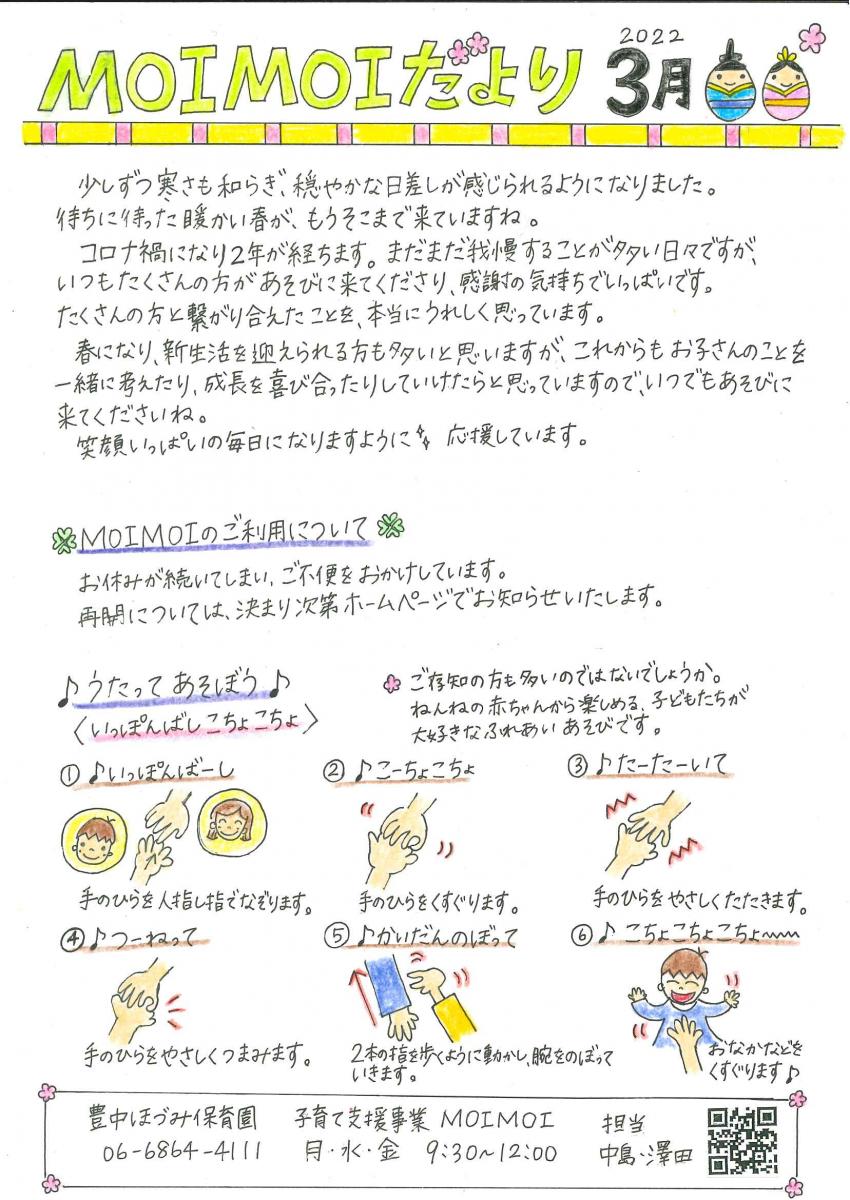 MOIMOIだより 2022 3月
少しずつ寒さも和らぎ、穏やかな日差しが感じられるようになりました。
待ちに待った暖かい春が、もうそこまで来ていますね。
コロナ禍になり2年が経ちます。まだまだ我慢することが多い日々ですが、
いつもたくさんの方があそびに来てくださり、感謝の気持ちでいっぱいです。
たくさんの方と繋がり合えたことを、本当にうれしく思っています。
春になり、新生活を迎えられる方も多いと思いますが、これからもお子さんのことを
一緒に考えたり、成長を喜び合ったりしていけたらと思っていますので、いつでもあそびに
来てくださいね。
笑顔いっぱいの毎日になりますように 応援しています。
MOIMOIのご利用について
お休みが続いてしまい、ご不便をおかけしています。
再開については、決まり次第ホームページでお知らせいたします。
♪うたってあそぼう♪
〈いっぽんばしこちょこちょ〉
ご存知の方も多いのではないでしょうか。
ねんねの赤ちゃんから楽しめる、子どもたちが
大好きなふれあいあそびです。
① ♪いっぽんばーし
手のひらを人指し指でなぞります。
② ♪こーちょこちょ
手のひらをくすぐります。
③ ♪たーたーいて
手のひらをやさしくたたきます。
④ ♪つーねって
手のひらをやさしくつまみます。
⑤ ♪かいだんのぼって
2本の指を歩くように動かし、腕をのぼって
いきます。
⑥ ♪こちょこちょこちょ〰〰
おなかなどを
くすぐります♪
豊中ほづみ保育園 子育て支援事業 MOIMOI 担当
06-6864-4111 月・水・金 9:30～12:00 中島・澤田